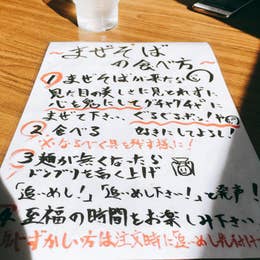 ~まぜそばの食べ方~
① まぜそばが来たら
見た目の美しさに見とれずに
心を鬼にしてグチャグチャに
まぜて下さい。ぐるぐるポン!や
② 食べる 好きにしてよろし!
※なるべく具を残す様に!
③ 麺が無くなったら
ドンブリを高く上げ
「追いめし!」「追いめし下さい!」と発声!
4. 至福の時間をお楽しみ下さい
恥ずかしい方は注文時に追いめし